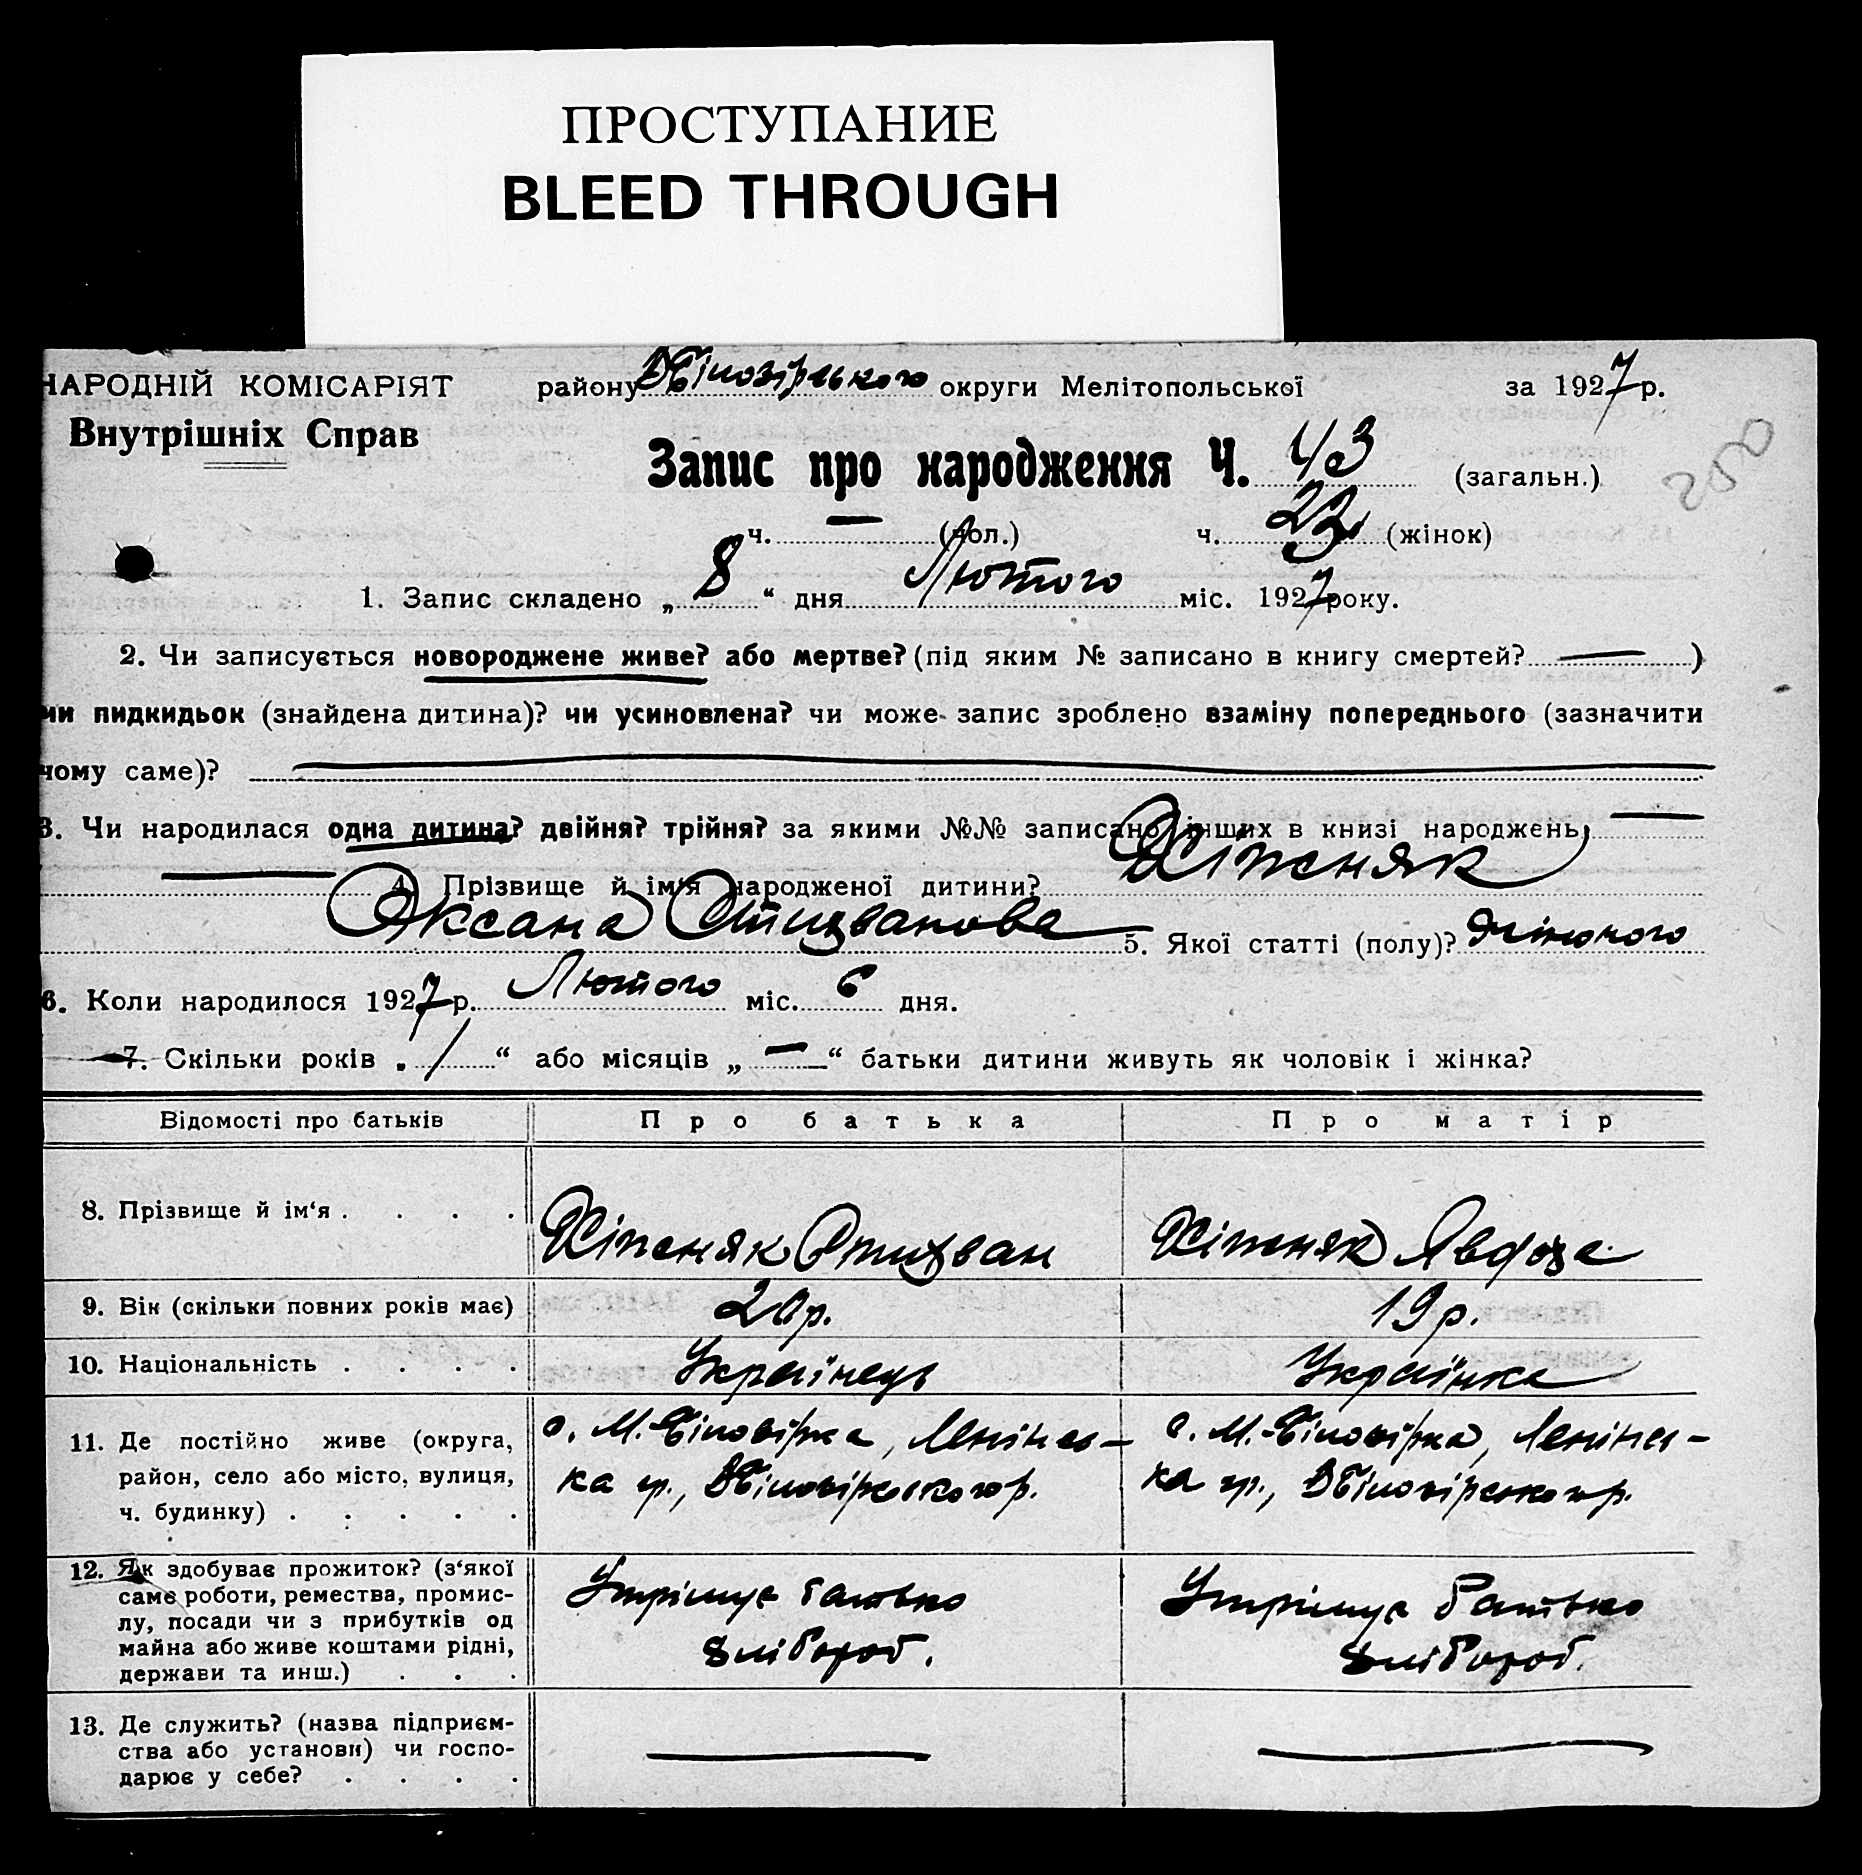 ПРОСТУПАНИЕ
BLEED THROUGH
НАРОДНІЙ КОМІСАРІЯТ району В Білозірського округи Мелітопольської за 1927 р.
Внутрішніх Справ
Запис про народження Ч. 43 (загальн.)
200
ч. — (чол.) ч. 23 (жінок)
1. Запис складено „ 8 “ дня Лютого міс. 1927 року.
2. Чи записується новороджене живе? або мертве? (під яким № записано в книгу смертей? — )
чи пидкидьок (знайдена дитина)? чи усиновлена? чи може запис зроблено взаміну попереднього (зазначити
чому саме)?
3. Чи народилася одна дитина? двійня? трійня? за якими №№ записано інших в книзі народжень, —
— 4. Прізвище й ім‘я народженої дитини?
Оксана 5. Якої статті (полу)? жіночого
6. Коли народилося 1927 р. Лютого міс. 6 дня.
7. Скільки років „ 1 “ або місяців „ — “ батьки дитини живуть як чоловік і жінка?
Відомості про батьків Про батька Про матір
8. Прізвище й ім‘я . . . .
9. Вік (скільки повних років має) 20 р. 19 р.
10. Національність . . . . Українець Українка
11. Де постійно живе (округа, с. М.-Білозірка, Ленінсь- с. М.-Білозірка, Ленінсь-
район, село або місто, вулиця, ка гр., В Білозірського р. ка гр., В Білозірського р.
ч. будинку) . . . . .
12. Як здобуває прожиток? (з‘якої Утрімує батько Утрімує батько
саме роботи, ремества, промис-
лу, посади чи з прибутків од хлібороб. хлібороб.
майна або живе коштами рідні,
держави та инш.) . . .
13. Де служить? (назва підприєм-
ства або установи) чи госпо- — —
дарює у себе? . . . .